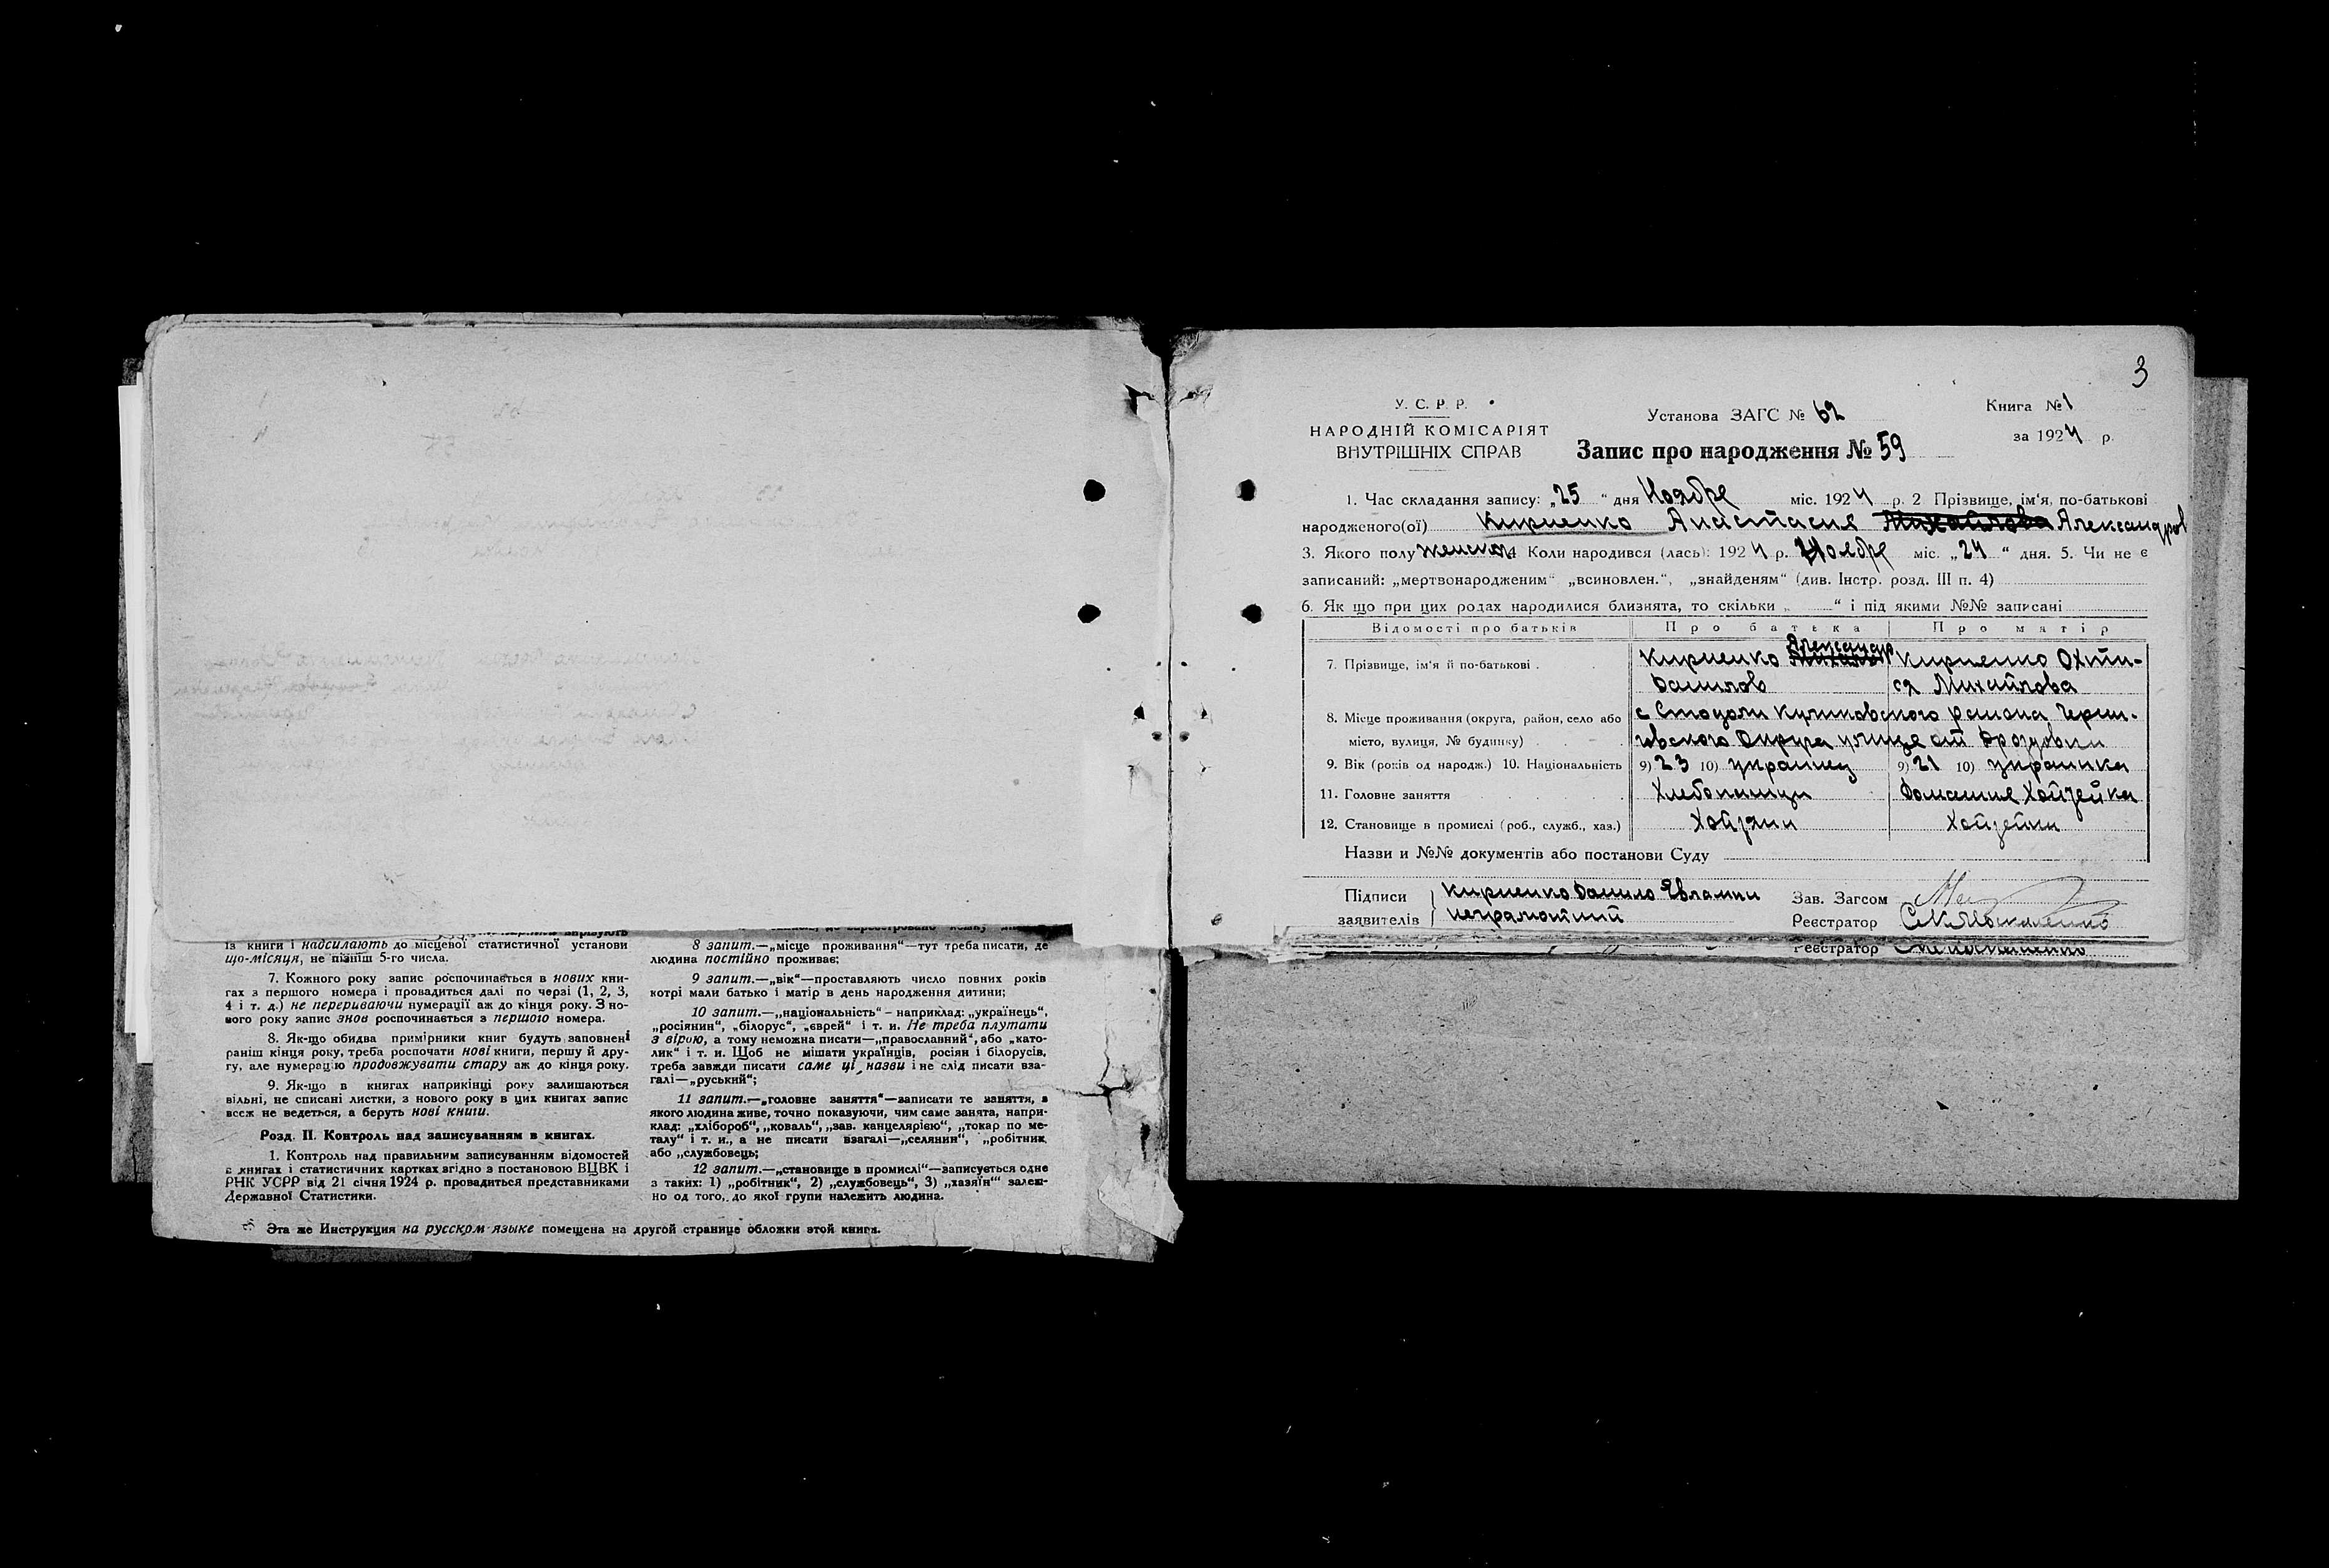 із книги і надсилають до місцевої статистичної установи
що-місяця, не пізніш 5-го числа.
7. Кожного року запис роспочинається в нових кни-
гах з першого номера і провадиться далі по черзі (1, 2, 3,
4 і т. д.) не перериваючи нумерації аж до кінця року. З но-
вого року запис знов роспочинається з першого номера.
8. Як-що обидва примірники книг будуть заповнені
раніш кінця року, треба роспочати нові книги, першу й дру-
гу, але нумерацію продовжувати стару аж до кінця року.
9. Як-що в книгах наприкінці року залишаються
вільні, не списані листки, з нового року в цих книгах запис
всеж не ведеться, а беруть нові книги.
Розд. II. Контроль над записуванням в книгах.
1. Контроль над правильним записуванням відомостей
в книгах і статистичних картках згідно з постановою ВЦВК і
РНК УСРР від 21 січня 1924 р. провадиться представниками
Державної Статистики.
8 запит.—„місце проживання“—тут треба писати, де
людина постійно проживає;
9 запит.—„вік“—проставляють число повних років
котрі мали батько і матір в день народження дитини;
10 запит.—„національність“ – наприклад: „українець“,
„росіянин“, „білорус“, „єврей“ і т. и. Не треба плутати
з вірою, а тому неможна писати—„православний“, або „като-
лик“ і т. и. Щоб не мішати українців, росіян і білорусів,
треба завжди писати саме ці назви і не слід писати вза-
галі—„руський“;
11 запит.—„головне заняття“—записати те заняття, з
якого людина живе, точно показуючи, чим саме занята, напри-
клад: „хлібороб“, „коваль“, „зав. канцелярією“, „токар по ме-
талу“ і т. и., а не писати взагалі—„селянин“, „робітник
або „службовець;
12 запит.—„становище в промислі“—записується одне
з таких: 1) „робітник“, 2) „службовець“, 3) „хазяїн“ залеж-
но од того, до якої групи належить людина.
Эта же Инструкция на русском языке помещена на другой странице обложки этой книги.
3
У. С. Р. Р.
НАРОДНІЙ КОМІСАРІЯТ
ВНУТРІШНІХ СПРАВ
Установа ЗАГС № 62
Запис про народження № 59
Книга № 1
за 1924 р.
1. Час складання запису: „25“ дня Ноября міс. 1924 р. 2 Прізвище, ім‘я, по-батькові
народженого(ої) Кириенко Анастасия Михайлова Александров
3. Якого полу женского 4 Коли народився (лась): 1924 р. Ноября міс. „24“ дня. 5. Чи не є
записаний: „мертвонародженим“ „всиновлен.“, „знайденям“ (див. Інстр. розд. III п. 4)
6. Як що при цих родах народилися близнята, то скільки „ “ і під якими №№ записані
Відомості про батьків Про батька Про матір
7. Прізвище, ім‘я й по-батькові Кириенко Александр Данилов Кириенко Охти-
ся Михайлова
8. Місце проживання (округа, район, село або
місто, вулиця, № будинку)
с Стодоли Куликовского района Черни-
говского Округа улица от Дроздовки
9. Вік (років од народж.) 10. Національність 9) 23 10) украинец 9) 21 10) украинка
11. Головне заняття Хлебопашци Домашние Хойзейка
12. Становище в промислі (роб., служб., хаз.) Хойзяин Хойзейки
Назви и №№ документів або постанови Суду
Підписи
заявителів
Кириенко Данило Евлампи
неграмотний
Зав. Загсом
Реєстратор С.К.Москаленко
Реєстратор